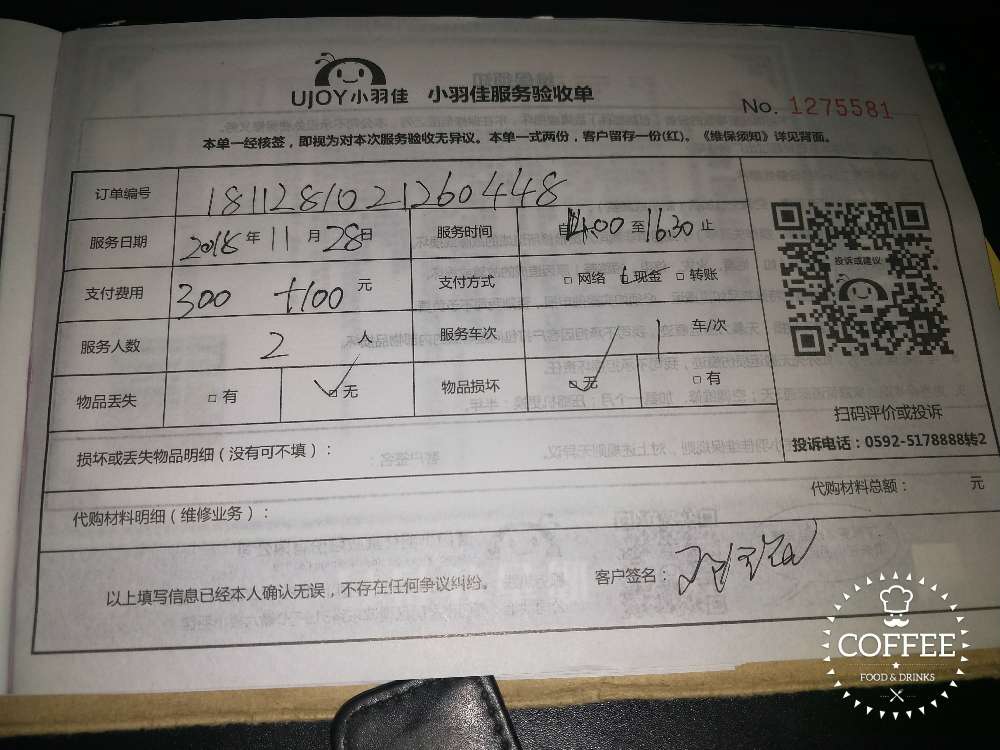 UJOY小羽佳 小羽佳服务验收单
No. 1275581
本单一经核签，即视为对本次服务验收无异议。本单一式两份，客户留存一份(红)。《维保须知》详见背面。
订单编号 181128102126044​8
服务日期 2018年11月28日 服务时间 自14:00至16:30止
支付费用 300 +100 元 支付方式 □网络 □现金 □转账
服务人数 2 人 服务车次 1 车/次
物品丢失 □有 □无 物品损坏 □无 □有
投诉或建议
扫码评价或投诉
投诉电话：0592-5178888转2
损坏或丢失物品明细（没有可不填）：
代购材料明细（维修业务）： 代购材料总额： 元
以上填写信息已经本人确认无误，不存在任何争议纠纷。 客户签名：
COFFEE
FOOD & DRINKS